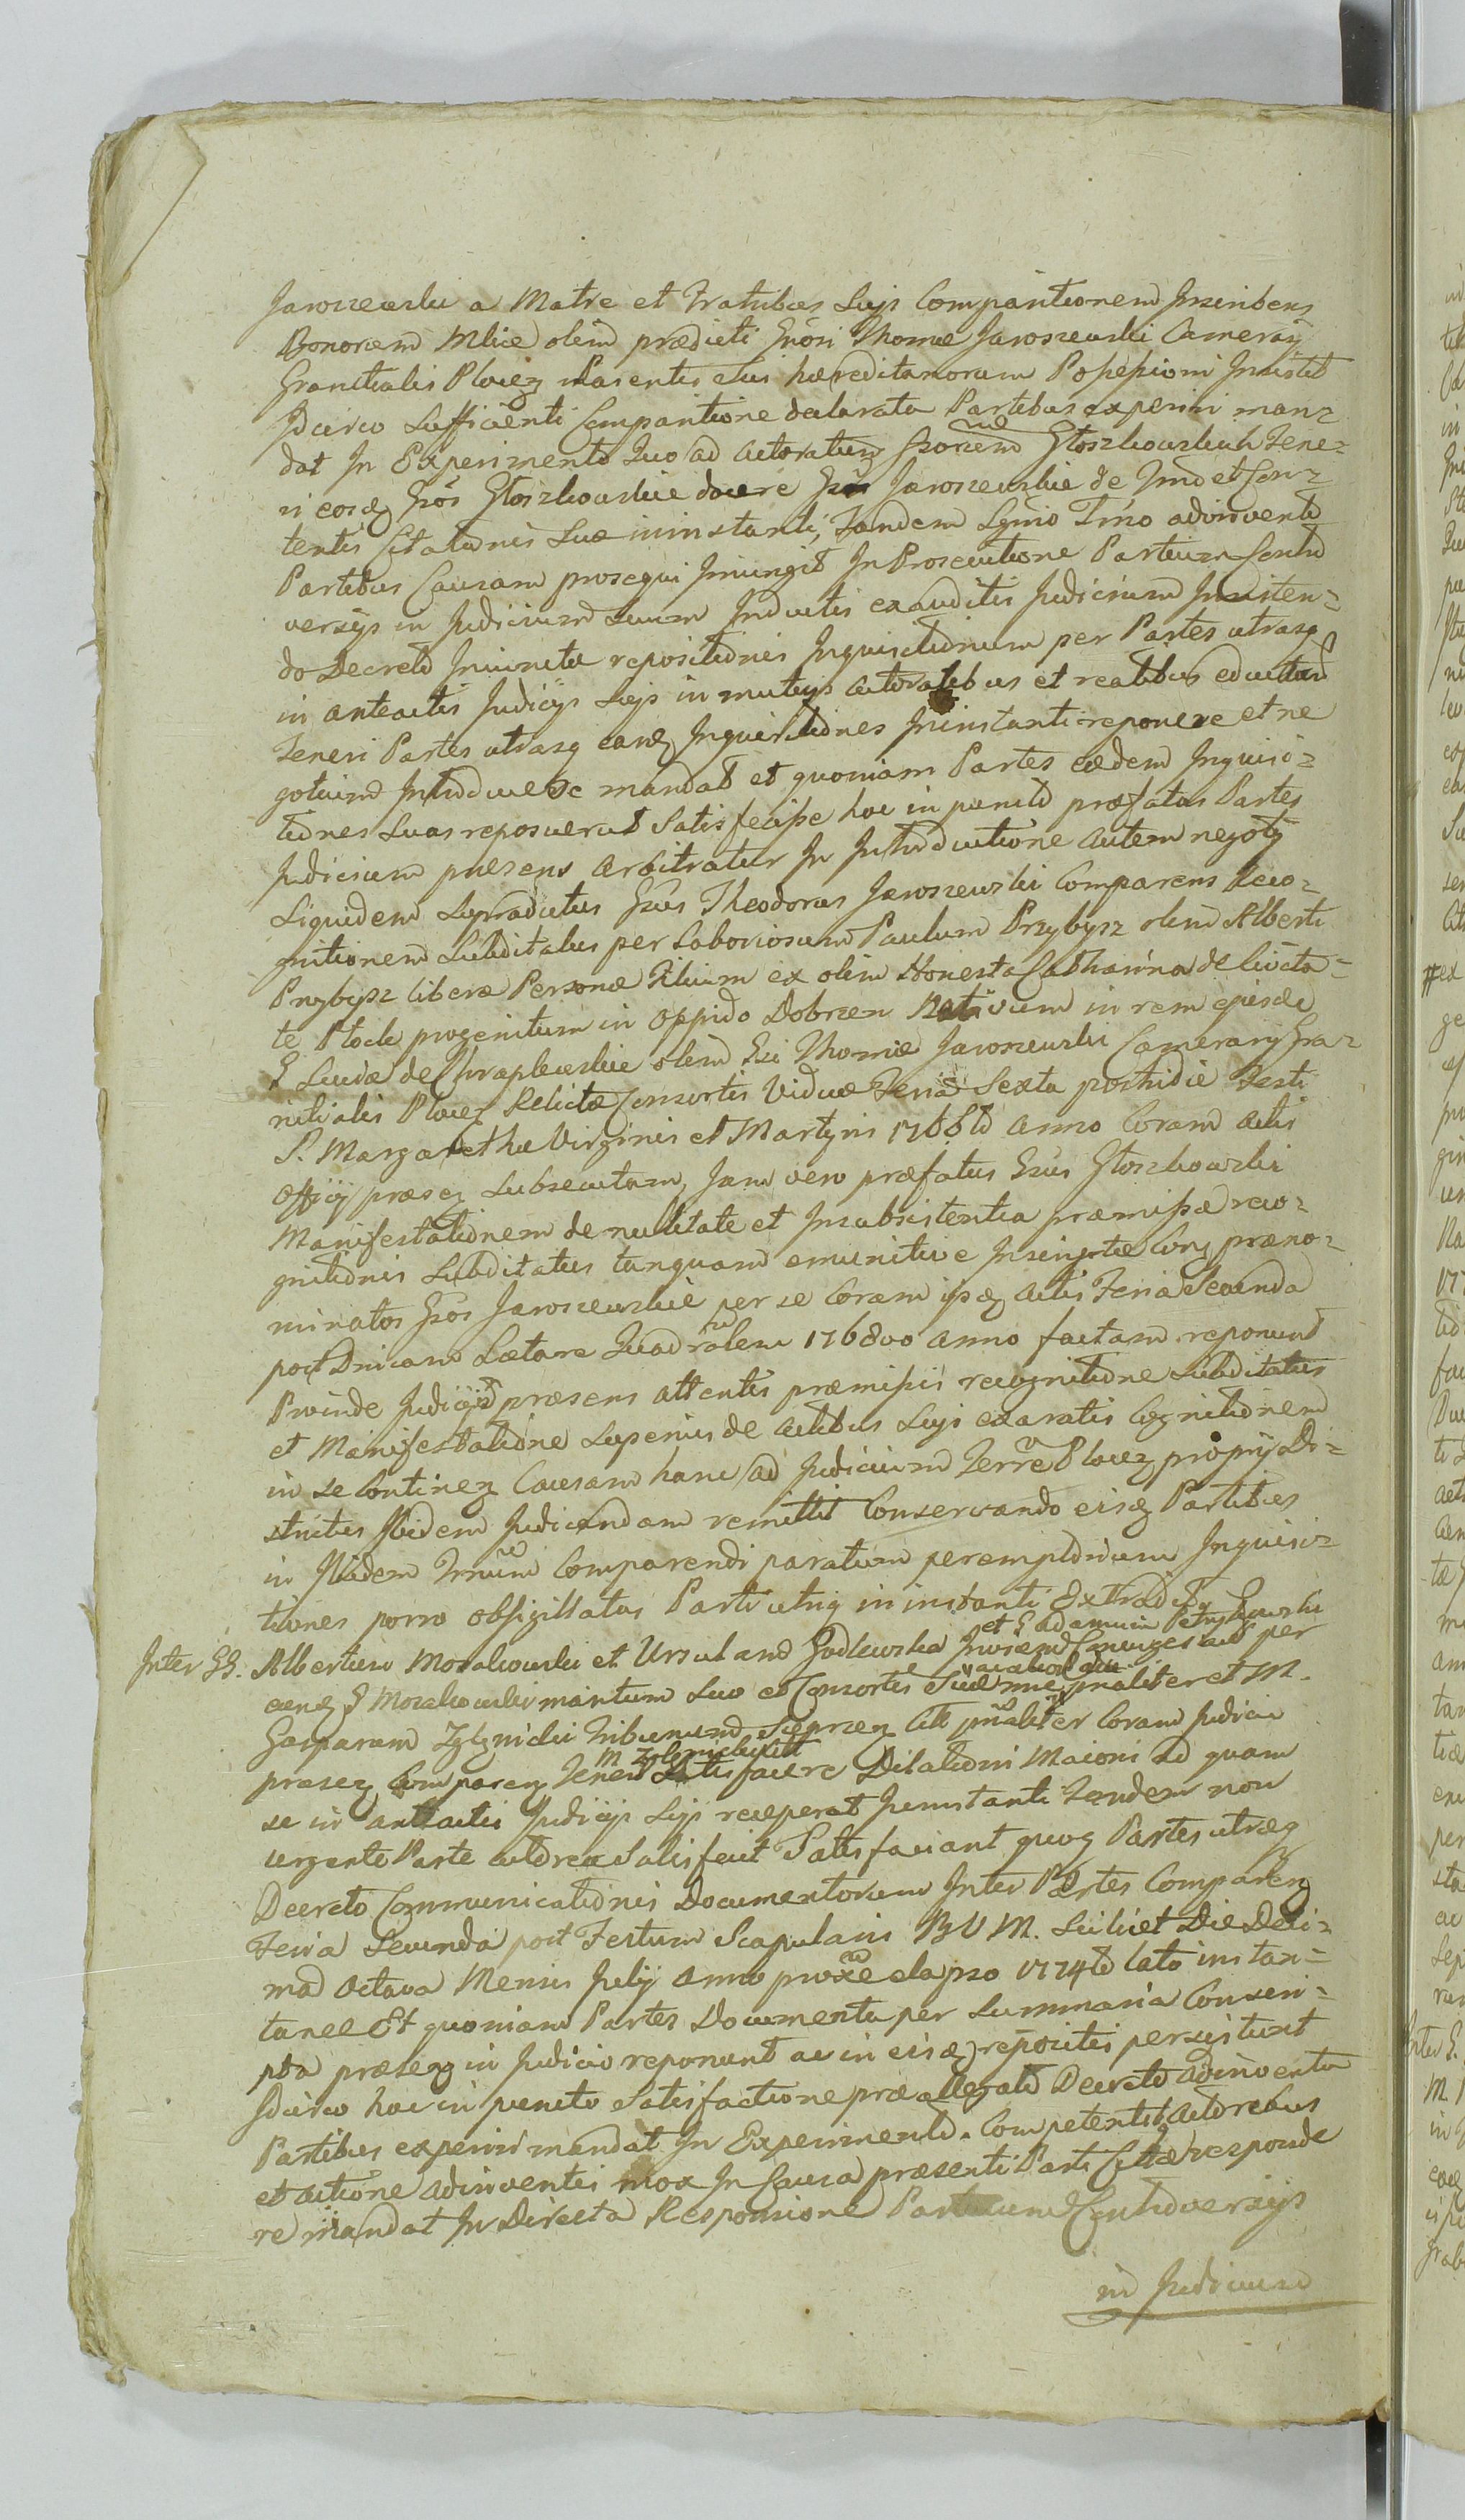 Jaroszewski a Matre et Fratribus Suis Comparitionem Inscribens
Bonorum Mlice olim prædicti Gnosi Thomæ Jaroszewski Camerarij
Granitialis Plocen Parentis Sui hæreditariorum Possessioni Insistit
Idcirco Sufficienti Comparitione declarata Partibus experiri man=
dat In Experimento Quo ad Actoratum Gsorum Głoszkowskich Tene=
ri eosq Gsos Głoszkowskie docere Gsos Jaroszewskie de Tmo et Con=
tentis Citationis Suæ ininstanti, Tandem Tmo adinvento
Partibus Causam prosequi Iniungit In Prosecutione Partium Contro
versijs in Judicium Suum Inductis exauditis Judicium Insisten=
do Decreto Iniunctæ repositionis Inquisitionum per Partes utrasq
in anteactis Judicijs Suis in mutuis actoratibus et reatibus eductarum
Teneri Partes utrasq easdq Inquisitiones Ininstanti reponere et ne
gotium Introducere mandat et quoniam Partes eædem Inquisi=
tiones Suas reposuerunt Satisfecisse hoc in puncto præfatas Partes
Judicium præsens arbitratur In Introductione autem negotij
Siquidem Supradictus Gsus Theodorus Jaroszewski Comparens Reco=
gnitionem Subditatus per Laboriosum Paulum Przybysz olim Alberti
Przybysz liberæ Personæ Filium ex olim Honesta Catharina de Civita=
te Plock progenitum in oppido Dobrzen Nativum in rem ejusde
G de Chraplewskie olim Gsi Thomæ Jaroszewski Camerarij Gra=
nitialis Plocen Relictæ Consortis Viduæ Feria Sexta postridie Festi
S. Margarethæ Virginis et Martyris 1766to Anno Coram actis
Officij præsen Subsecutam, Jam vero præfatus Gsus Głoszkowski
Manifestationem de nullitate et Insubsistentia præmissæ reco=
gnitionis Subditatus tanquam emunitive Inscriptæ præno=
minatos Gsos Jaroszewskie per se Coram ipsq actis Feria Secunda
post Dnicam Lætare Quadralem 1768vo anno factam reponunt
Proinde Judicium præsens attentis præmissis recognitione Subditatus
et Manifestatione Superius de actibus Suis exaratis Cognitionem
in se Continen Causam hanc ad Judicium Terre Plocen proprij Di=
strictus Ibidem Judicandam remittit Conservando eisq Partibus
in Ibidem Trnum Comparendi paratum peremptorium Inquisi=
tiones porro obsigillatas Parti utriq in instanti Extradi
et G Adamum
Inter GG. Albertum Mosakowski et Ursulam Godlewska Conjuges per
eunq G Mosakowski maritum Suo et Consortis Suæ nne pnaliter et M.
Gasparum Zglynicki Tribunum Sieprcen Citt pnaliter Coram Judicio
M Zglynicki
præsen Comparen Teneri Satisfacere Dilationi Maiori ad quam
se in anteactis Judicijs Suis receperat Ininstanti Tandem non
urgente Parte actorea Satisfecit Satisfaciant quoq Partes utræq
Decreto Communicationis Documentorum Inter Partes Comparen
Feria Secunda post Festum Scapularis B V M. Scilicet Die Deci=
ma Octava Mensis Julij Anno proxe elapso 1774to lato instan=
tanee Et quoniam Partes Documenta per Summaria Conscri=
pta præsen in Judicio reponunt ac in eisq repositis persistunt
Idcirco hoc in puncto Satisfactione præallegato Decreto adinventa
Partibus experiri mandat In Experimento Competentib Actoribus
et actione adinventis mox In Causa præsenti Parti Cittæ responde
re mandat In Directa Responsione Partium Controversijs
in Judicium